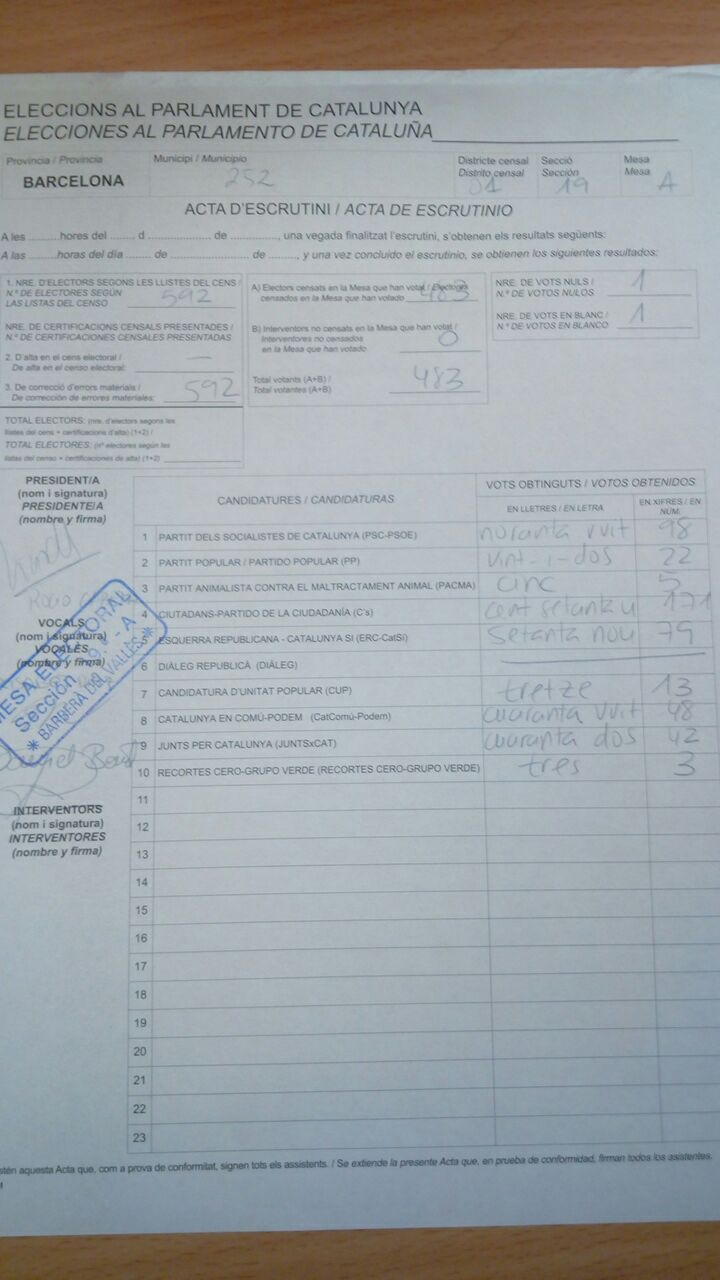 ELECCIONS AL PARLAMENT DE CATALUNYA
ELECCIONES AL PARLAMENTO DE CATALUÑA
Provincia / Provincia
BARCELONA
Municipi / Municipio
252
Districte censal
Distrito censal
01
Secció
Sección
19
Mesa
Mesa
A
ACTA D'ESCRUTINI / ACTA DE ESCRUTINIO
A les ..........hores del ..... d ..................... de ..............., una vegada finalitzat l'escrutini, s'obtenen els resultats següents:
A las ..........horas del día ..... de ..................... de .........., y una vez concluido el escrutinio, se obtienen los siguientes resultados:
1. NRE. D'ELECTORS SEGONS LES LLISTES DEL CENS /
N.º DE ELECTORES SEGÚN
LAS LISTAS DEL CENSO
592
NRE. DE CERTIFICACIONS CENSALS PRESENTADES /
N.º DE CERTIFICACIONES CENSALES PRESENTADAS
2. D'alta en el cens electoral /
De alta en el censo electoral: —
3. De correcció d'errors materials /
De corrección de errores materiales: 592
TOTAL ELECTORS: (nre. d'electors segons les
llistes del cens + certificacions d'alta) (1+2) /
TOTAL ELECTORES: (nº electores según las
listas del censo + certificaciones de alta) (1+2)
A) Electors censats en la Mesa que han votat / Electores
censados en la Mesa que han votado 483
B) Interventors no censats en la Mesa que han votat /
Interventores no censados
en la Mesa que han votado
0
Total votants (A+B) /
Total votantes (A+B)
483
NRE. DE VOTS NULS /
N.º DE VOTOS NULOS
1
NRE. DE VOTS EN BLANC /
N.º DE VOTOS EN BLANCO
1
PRESIDENT/A
(nom i signatura)
PRESIDENTE/A
(nombre y firma)
VOCALS
(nom i signatura)
VOCALES
(nombre y firma)
MESA ELECTORAL
Sección
BARBERÀ DEL VALLÈS
INTERVENTORS
(nom i signatura)
INTERVENTORES
(nombre y firma)
CANDIDATURES / CANDIDATURAS
VOTS OBTINGUTS / VOTOS OBTENIDOS
EN LLETRES / EN LETRA
EN XIFRES / EN NÚM.
1 PARTIT DELS SOCIALISTES DE CATALUNYA (PSC-PSOE) noranta vvit 98
2 PARTIT POPULAR / PARTIDO POPULAR (PP) vint-i-dos 22
3 PARTIT ANIMALISTA CONTRA EL MALTRACTAMENT ANIMAL (PACMA) cinc 5
4 CIUTADANS-PARTIDO DE LA CIUDADANÍA (C's) cent setanta u 171
5 ESQUERRA REPUBLICANA - CATALUNYA SÍ (ERC-CatSí) setanta nou 79
6 DIÀLEG REPUBLICÀ (DIÀLEG)
7 CANDIDATURA D'UNITAT POPULAR (CUP) tretze 13
8 CATALUNYA EN COMÚ-PODEM (CatComú-Podem) cuaranta vvit 48
9 JUNTS PER CATALUNYA (JUNTSxCAT) cuaranta dos 42
10 RECORTES CERO-GRUPO VERDE (RECORTES CERO-GRUPO VERDE) tres 3
11
12
13
14
15
16
17
18
19
20
21
22
23
aquesta Acta que, com a prova de conformitat, signen tots els assistents. / Se extiende la presente Acta que, en prueba de conformidad, firman todos los asistentes.